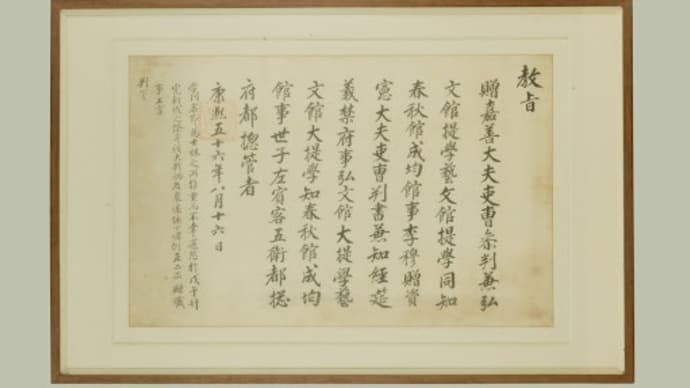 教旨
贈嘉善大夫吏曹叅判兼弘
文館提學藝文館提學同知
春秋館成均館事李穆贈資
憲大夫吏曹判書兼知經筵
義禁府事弘文館大提學藝
文館大提學知春秋館成均
館事世子左賓客五衛都摠
府都摠管者
康熙五十六年八月十六日